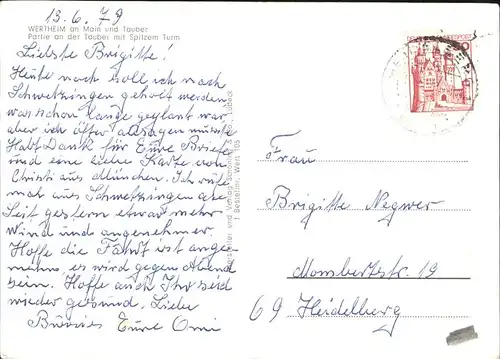 13.6.79
WERTHEIM an Main und Tauber
Partie an der Tauber mit Spitzem Turm
Liebste Brigitte!
Heute noch soll ich nach
Schwetzingen geholt werden
war schon lange geplant war
aber ich öfter absagen musste
Habt Dank für Eure Briefe
und eine liebe Karte von
Christi aus München. Ich rufe
mal aus Schwetzingen an.
Seit gestern etwas mehr
Wind und angenehmer.
Hoffe die Fahrt ist ange
nehm es wird gegen Abend
sein. Hoffe auch Ihr seid
wieder gesund. Liebe
Eure Omi
Hersteller und Verlag Schöning & Co., Lübeck
Bestellnr. Werh 105
BUNDESPOST
Frau
Brigitte Negwer
Mombertstr. 19
69 Heidelberg